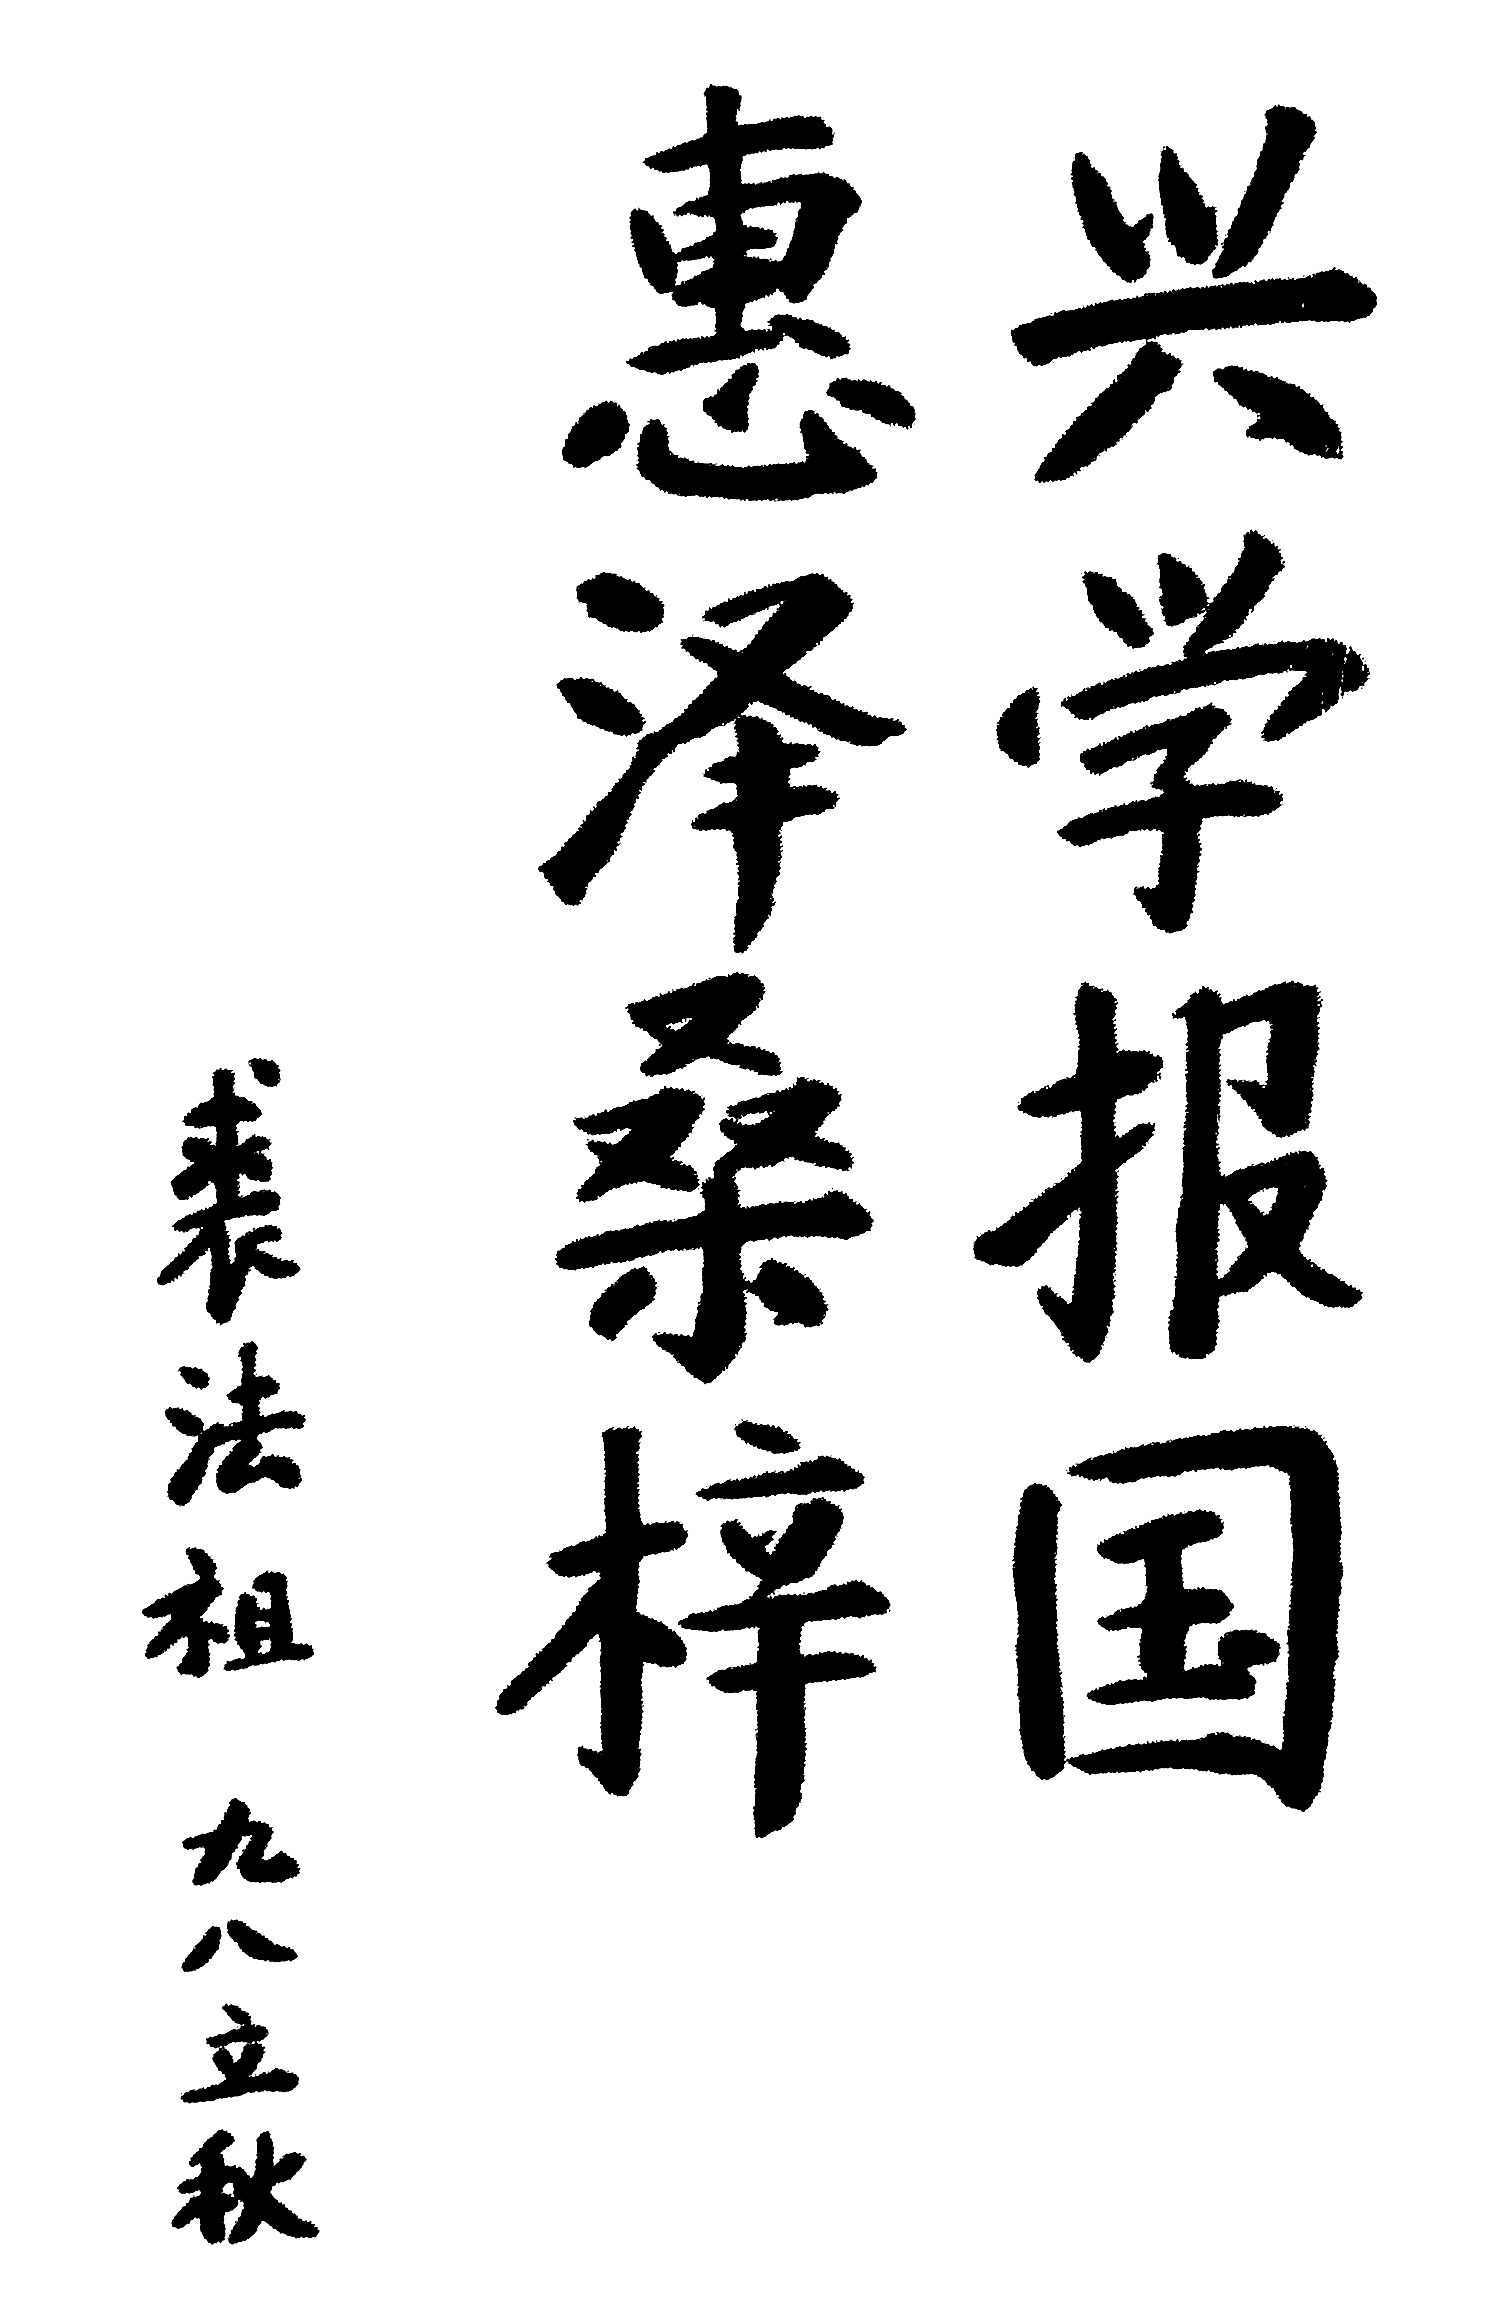 兴学报国
惠泽桑梓
裘法祖 九八立秋